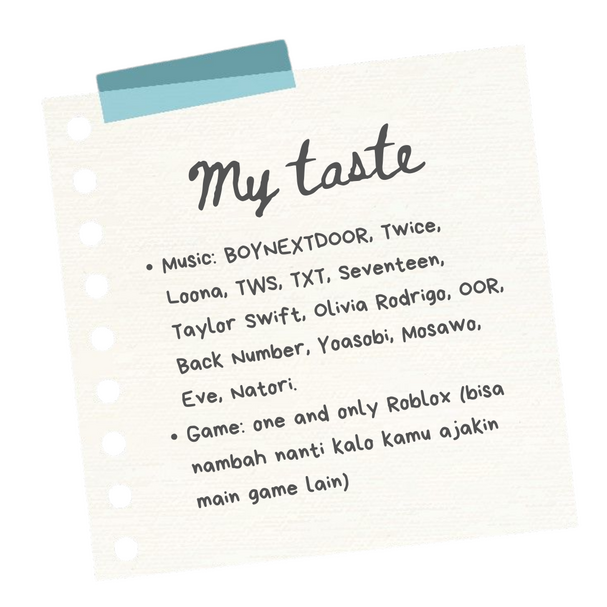 My taste
• Music: BOYNEXTDOOR, Twice,
Loona, TWS, TXT, Seventeen,
Taylor Swift, Olivia Rodrigo, OOR,
Back Number, Yoasobi, Mosawo,
Eve, Natori.
• Game: one and only Roblox (bisa
nambah nanti kalo kamu ajakin
main game lain)